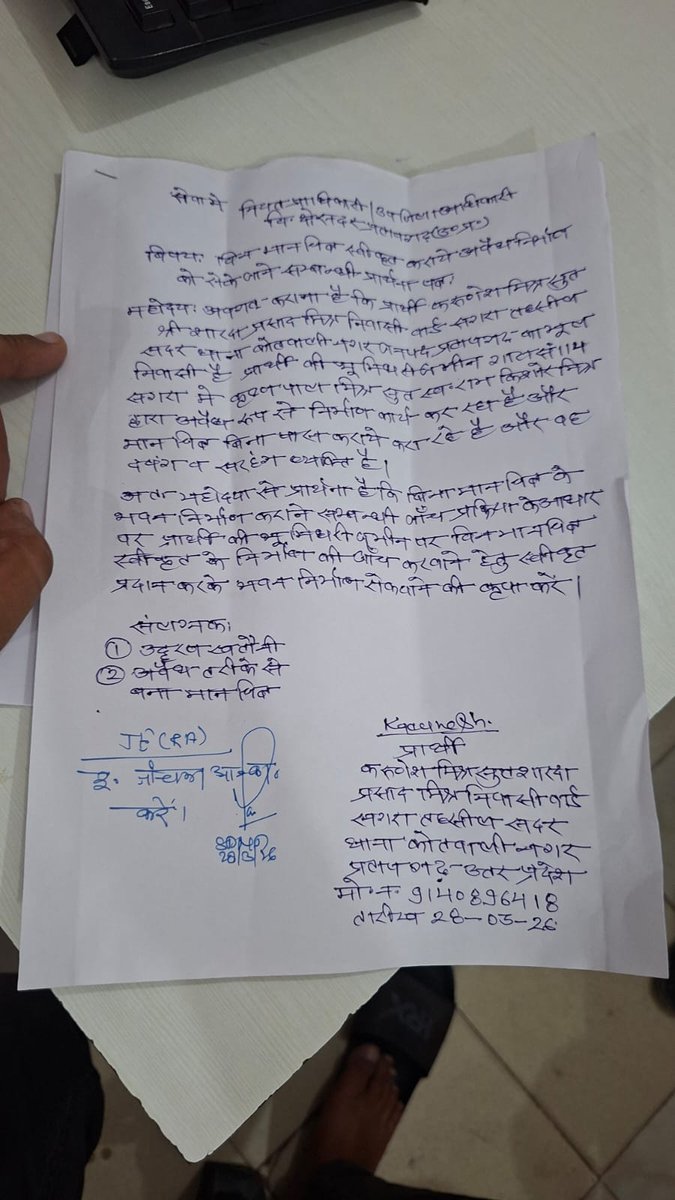 सेवा मे नियत प्राधिकारी / उप जिला अधिकारी
वि० क्षे० सदर प्रतापगढ़ (उ० प्र०)
विषय: बिना मानचित्र स्वीकृत कराये अवैध निर्माण
को रोके जाने सम्बन्धी प्रार्थना पत्र।
महोदय: अवगत कराना है कि प्रार्थी करुणेश मिश्र सुत
श्री शारदा प्रसाद मिश्र निवासी वार्ड सगरा तहसील
सदर थाना कोतवाली नगर जनपद प्रतापगढ़ का मूल
निवासी है प्रार्थी की भूमिधरी जमीन गाटा सं॰ 114
सगरा मे कृष्ण पाल मिश्र सुत स्व॰ राम किशोर मिश्र
द्वारा अवैध रूप से निर्माण कार्य कर रहा है और
मानचित्र बिना पास कराये करा रहे है और वह
दबंग व सरहंग व्यक्ति है।
अतः महोदया से प्रार्थना है कि बिना मानचित्र के
भवन निर्माण कराने सम्बन्धी जाँच प्रक्रिया के आधार
पर प्रार्थी की भूमिधरी जमीन पर बिना मानचित्र
स्वीकृत के निर्माण की जाँच करवाने हेतु स्वीकृत
प्रदान करके भवन निर्माण रोकवाने की कृपा करें।
संलग्नक:
① उद्धरण खतौनी
② अवैध तरीके से
बना मानचित्र
JE (RA)
कृ. जाँच कर आख्या
करें।
28/3/26
Karunesh.
प्रार्थी
करुणेश मिश्र सुत शारदा
प्रसाद मिश्र निवासी वार्ड
सगरा तहसील सदर
थाना कोतवाली नगर
प्रतापगढ़ उत्तर प्रदेश
मो॰ न॰ 9140896418
तारीख 28-03-26